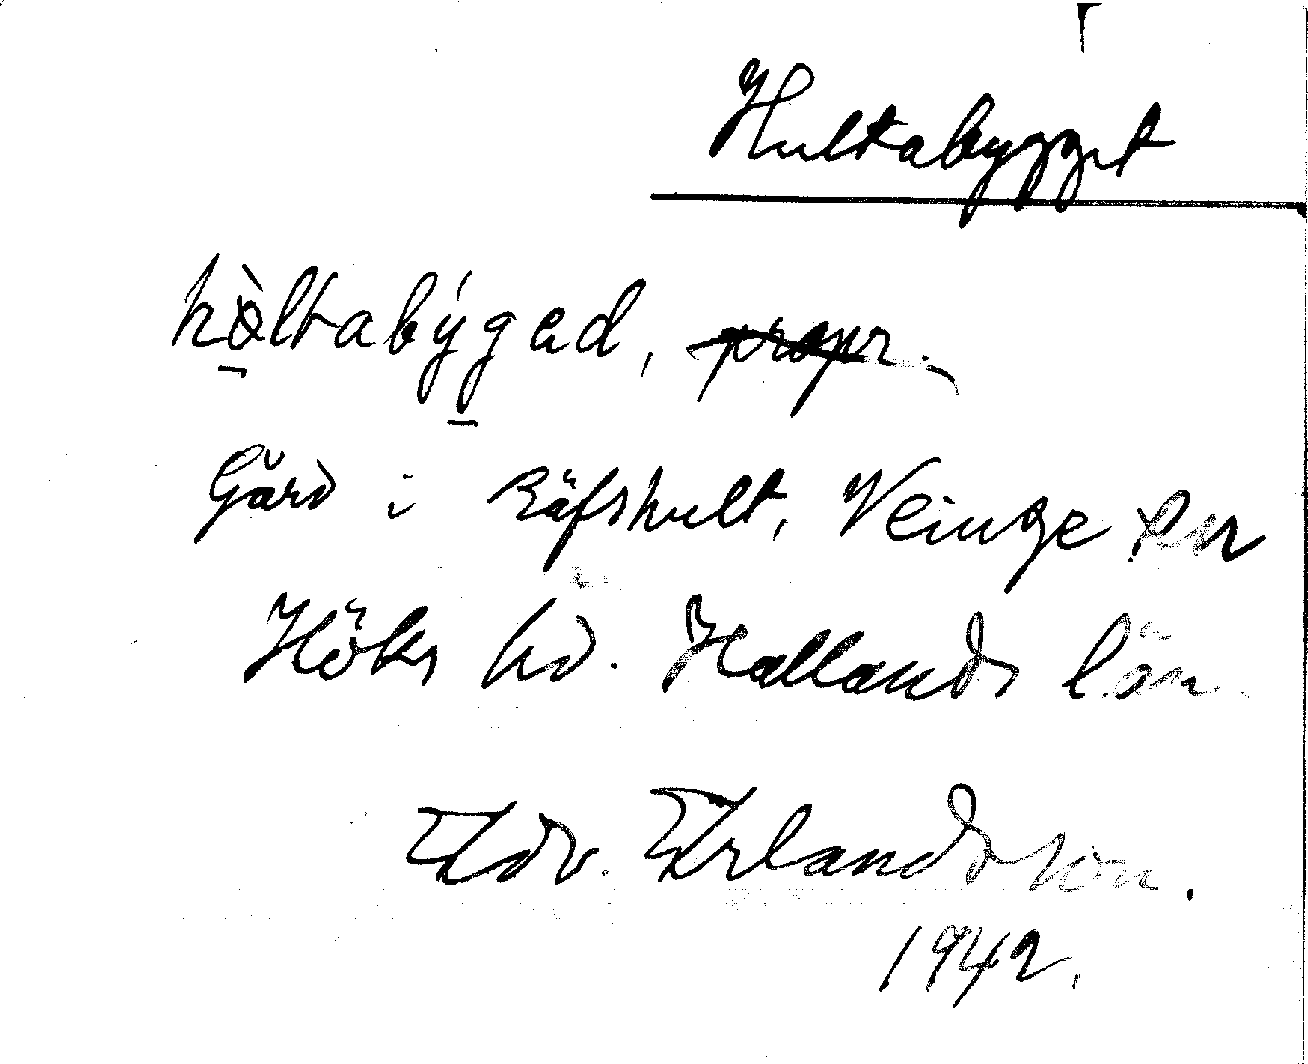 Hultabygget
hòltabýgad, propr.
Gård i Räfshult, Veinge sn
Höks hd. Hallands län
Edv. Erlandsson.
1942.